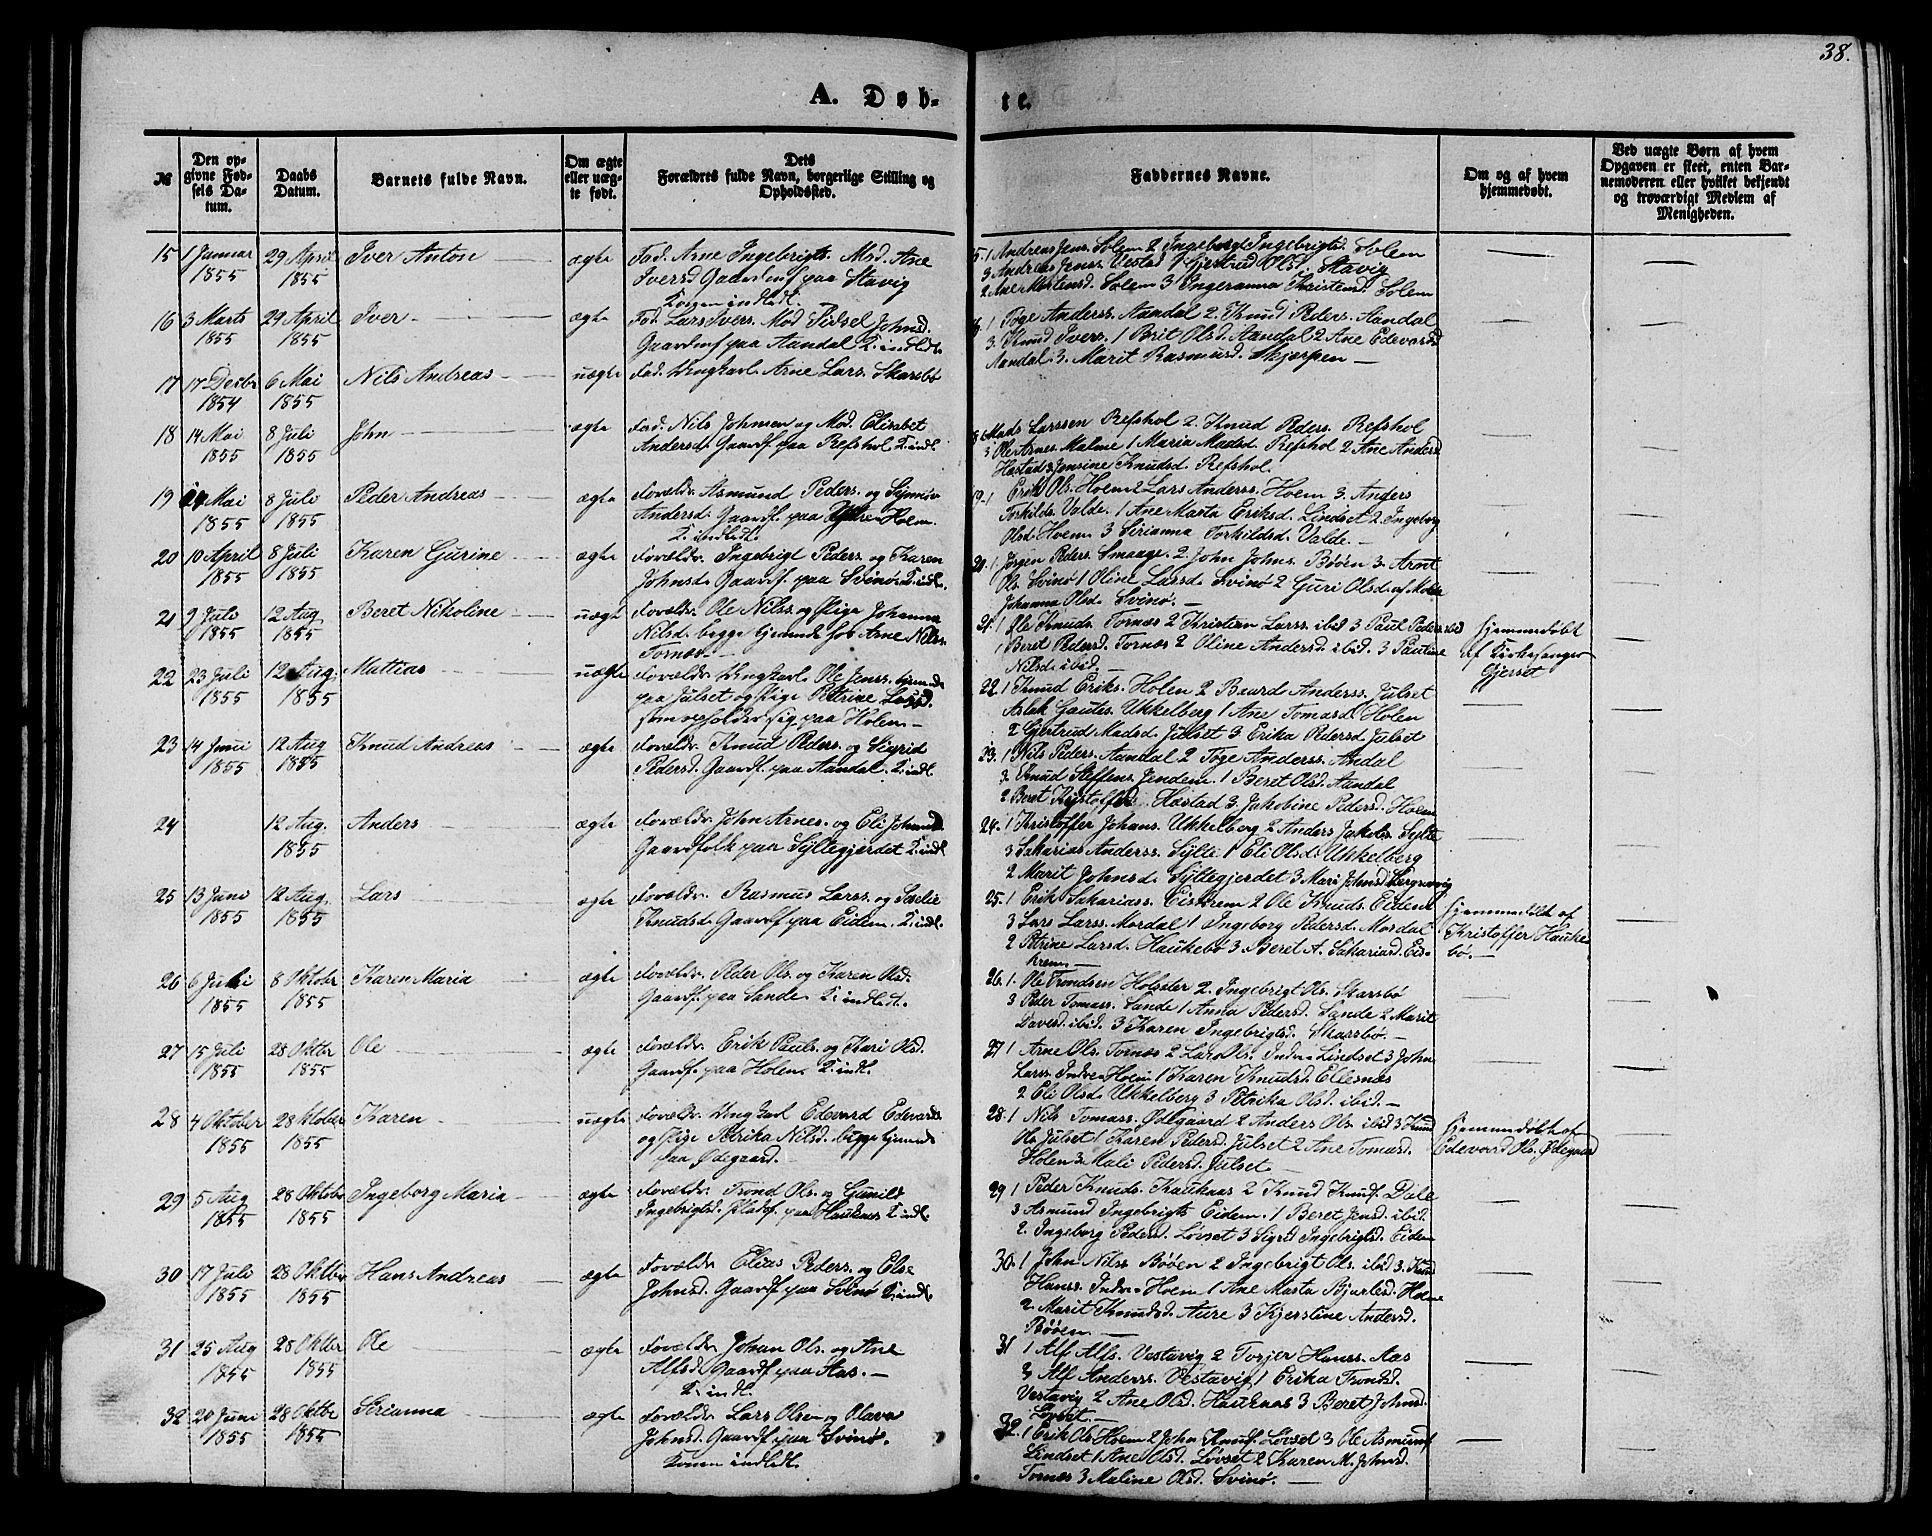 38.
A. Døb-
te.
№
Den op-
givne Fød-
sels Da-
tum.
Daabs
Datum.
Barnets fulde Navn.
Om ægte
eller uæg-
te født.
Dets
Forældres fulde Navn, borgerlige Stilling og
Opholdssted.
Faddernes Navne.
Om og af hvem
hjemmedøbt.
Ved uægte Børn af hvem
Opgaven er skeet, enten Bar-
nemoderen eller hvilket bekjendt
og troværdigt Medlem af
Menigheden.
15 1 Januar 29 April Iver Anton ægte Fad. Arne Ingebrigts. Mod. Ane
1855 1855 Iversd. Gaardmf paa Stavig
Konen indledt.
1 Andreas Jens. Solem 2 Ingeborg Ingebrigtsd. Solem
3 Andreas Jens. Vestad 1 Gjertrud Olsd. Stavig
2 Ane Mortensd. Solem 3 Ingeranna Kristensd. Solem
16 3 Marts 29 April Iver ægte Fad. Lars Ivers. Mod Sidsel Johnsd.
1855 1855 Gaardmf paa Aandal K. indledt.
1 Tøge Anderss. Aandal 2. Knud Peders. Aandal
3. Knud Ivers. 1 Brit Olsd. Aandal 2 Ane Edevardsd
Aandal 3. Marit Rasmusd. Skjerpen
17 17 Decbr 6 Mai Nils Andreas uægte Fad. Ungkarl Arne Lars. Skarsbø
1854 1855
18 14 Mai 8 Juli John ægte Fad. Nils Johnsen og Mod. Elisabet
1855 1855 Andersd. Gaardf. paa Refshol K. indl.
Mads Larssen Refshol 2. Knud Peders. Refshol
3 Ole Arnes. Malme 1 Maria Madsd. Refshol 2 Ane Andersd
Hastad 3 Jensine Knudsd. Refshol.
19 Mai 8 Juli Peder Andreas ægte Forældr. Asmund Peders. og Synnive
1855 1855 Andersd. Gaardf. paa Ytre Hoem.
K. indledt.
19. 1 Erik Ols. Hoem 2 Lars Anderss. Hoem 3. Anders
Torkilds. Valde. 1 Ane Marta Eriksd. Lindset 2. Ingeborg
Olsd. Hoem 3 Serianna Torkildsd. Valde.
20 10 April 8 Juli Karen Gurine ægte Forældr. Ingebrigt Peders. og Karen
1855 1855 Johnsd. Gaardf. paa Svinø K. indl.
20. 1 Jørgen Peders. Smaage. 2. John Johns. Bøen 3. Arnt
Ols. Svinø 1 Oline Larsd. Svinø 2 Guri Olsd. af Molde
Johanna Olsd. Svinø.
21 9 Juli 12 Aug Beret Nikoline uægte Forældr. Ole Nilss. og Pige Johanna
1855 1855 Nilsd. begge tjenende for Arne Nils.
Tornæs
21. 1 Ole Knuds. Tornæs 2 Kristen Larss. ibid 3 Paul Peders. ibid
1 Beret Pedersd. Tornæs 2 Oline Andersd. ibid. 3 Pauline
Nilsd. ibid.
hjemmedøbt
af Kirkesanger
Gjerset
22 23 Juli 12 Aug. Mattias uægte Forældr. Ungkarl Ole Jenss. tjenende
1855 1855 paa Julset og Pige Petrine Larsd.
som opholder sig paa Holen
22. 1 Knud Eriks. Holen 2 Baard Anderss. Julset
Aslak Gautes. Ukkelberg 1 Ane Tomasd. Holen
2 Gjertrud Madsd. Julset 3 Erika Pedersd. Julset
23 14 Juni 12 Aug Knud Andreas ægte Forældr. Knud Peders. og Sigrid
1855 1855 Pedersd. Gaardf. paa Aandal. K. indl.
23. 1 Nils Peders. Aandal 2 Tøge Anderss. Andal
3 Knud Steffens. Jendem. 1 Beret Olsd. Aandal
2 Beret Kristoffersd. Hastad 3. Jakobine Pedersd. Hoem
24 12 Aug. Anders ægte Forældr. John Arnes. og Eli Johnsd.
1855 Gaardfolk paa Syltegjerdet K. indl
24. 1 Kristoffer Johans. Ukkelberg 2 Anders Jakobs. Sylte
3 Sakarias Anderss. Sylte 1 Eli Olsd. Ukkelberg
2 Marit Johnsd. Syltegjerdet 3 Mari Johnsd.
25 13 Juni 12 Aug. Lars ægte Forældr. Rasmus Larss. og Seselie
1855 1855 Knudsd. Gaardf. paa Eidem. K. indl.
25. 1 Erik Sakariass. Eiskrem 2 Ole Knuds. Eidem
3 Lars Larss. Mordal 1 Ingeborg Pedersd. Mordal
2 Petrine Larsd. Haukebø 3. Beret A. Sakariasd. Eis-
krem
hjemmedøbt af
Kristoffer Hauke
bø.
26 6 Juli 8 Oktober Karen Maria ægte Forældr. Peder Ols. og Karen Olsd.
1855 1855 Gaardf. paa Sande. K. indledt.
26. 1. Ole Trondsen Holsæter 2. Ingebrigt Ols. Skarsbø
3 Peder Tomass. Sande 1 Anna Pedersd. Sande 2 Marit
Davesd. ibid. 3 Karen Ingebrigtsd. Skarsbø.
27 15 Juli 28 Oktbr Ole ægte Forældr. Erik Pauls. og Kari Olsd.
1855 1855 Gaardf. paa Holen K. indl.
27 1 Arne Ols. Tornæs 2 Lars Ols. Indre Lindset 3 John
Larss. Indre Hoem 1 Karen Knudsd. Ellesnæs
2 Eli Olsd. Ukkelberg 3 Petrika Olsd. ibid.
28 4 Oktober 28 Oktober Karen uægte Forældr. Ungkarl Edevard Edevards
1855 1855 og Pige Petrika Nilsd. begge tjenende
paa Ødegaard.
28. 1 Nils Tomass. Ødegaard 2 Anders Ols. ibid 3 Knud
Ols. Julset 1 Karen Pedersd. Julset 2 Ane Tomasd.
Holen 3. Mali Pedersd. Julset
hjemmedøbt af
Edevard Ols. Ødegaard
29 5 Aug 28 Oktober Ingeborg Maria ægte Forældr. Trond Ols. og Gunild
1855 1855 Ingebrigtsd. Pladsf. paa Hauknæs K. indl.
29 1 Peder Knuds. Hauknæs 2 Knud Knuds. Dale
3 Asmund Ingebrigts. Eidem. 1 Beret Jensd. ibid.
2. Ingeborg Pedersd. Løvset 3 Sigrid Ingebrigtsd. Eidem
30 17 Juli 28 Oktbr Hans Andreas ægte Forældr. Elias Peders. og Else
1855 1855 Johnsd. Gaardf. paa Svinø K. indl.
30. 1 John Nilss. Bøen 2 Ingebrigt Ols. ibid 3. Knud
Hanss. Indre Hoem 1 Ane Marta Bjarlesd. Hoem
2. Marit Knudsd. Aure 3 Kjerstine Andersd.
Bøen.
31 25 Aug 28 Oktbr Ole ægte Forældr. Johan Ols. og Ane
1855 1855 Alfsd. Gaardf. paa Aas.
K. indl.
31 1 Alf Alfs. Vestavig 2 Torjer Hanss. Aas
3 Alf Anderss. Vestavig 1 Erika Trondsd.
Vestavig 2 Ane Olsd. Hauknæs 3 Beret Johnsd.
Løvset.
32 20 Juni 28 Oktbr Serianna ægte Forældr. Lars Olsen og Olava
1855 1855 Johnsd. Gaardf. paa Svinø.
Konen indledt.
32. 1 Erik Ols. Hoem 2 John Knuds. Løvset 3 Ole Asmunds.
Lindset 1 Ane Olsd. Løvset 2 Karen M. Johnsd.
Tornæs 3 Maline Olsd. Svinø.